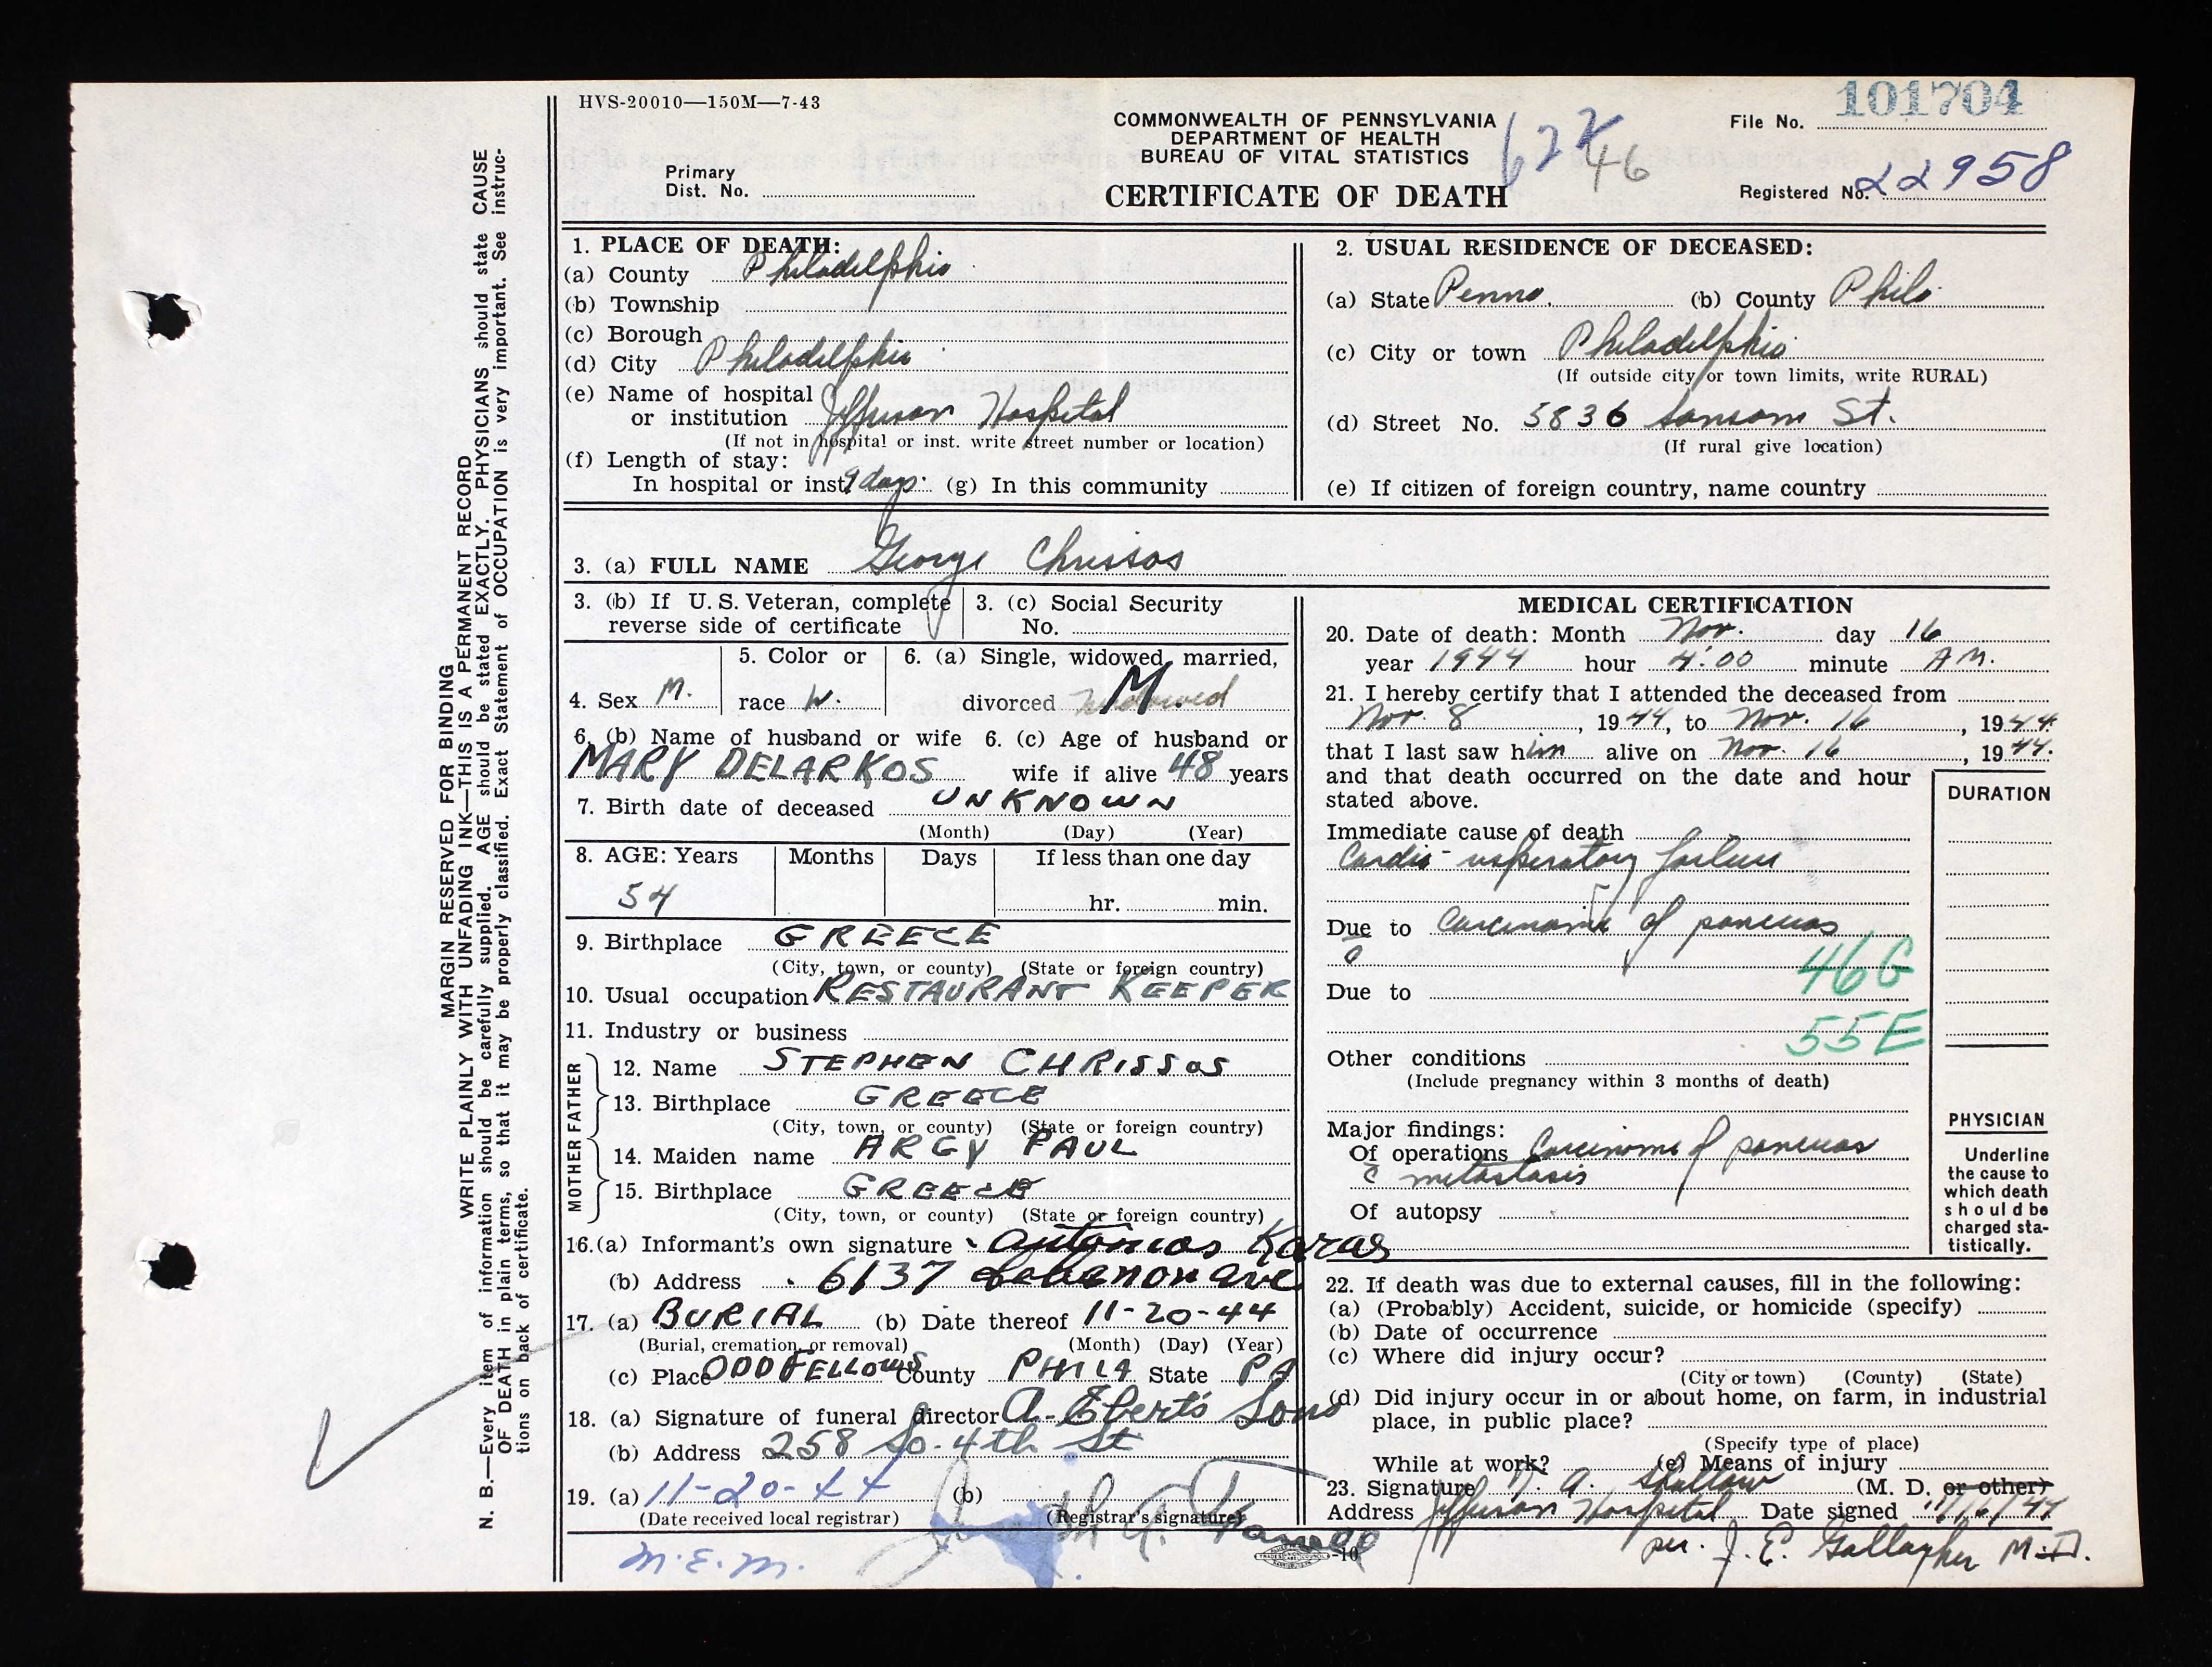 HVS-20010—150M—7-43
COMMONWEALTH OF PENNSYLVANIA
DEPARTMENT OF HEALTH
BUREAU OF VITAL STATISTICS
CERTIFICATE OF DEATH
Primary
Dist. No.
File No. 101704
Registered No. 22958
46
MARGIN RESERVED FOR BINDING
WRITE PLAINLY WITH UNFADING INK—THIS IS A PERMANENT RECORD
N. B.—Every item of information should be carefully supplied. AGE should be stated EXACTLY. PHYSICIANS should state CAUSE
OF DEATH in plain terms, so that it may be properly classified. Exact Statement of OCCUPATION is very important. See instruc-
tions on back of certificate.
1. PLACE OF DEATH:
(a) County Philadelphia
(b) Township
(c) Borough
(d) City Philadelphia
(e) Name of hospital
or institution Jefferson Hospital
(If not in hospital or inst. write street number or location)
(f) Length of stay:
In hospital or inst. 9 days. (g) In this community
2. USUAL RESIDENCE OF DECEASED:
(a) State Penna. (b) County Phila
(c) City or town Philadelphia
(If outside city or town limits, write RURAL)
(d) Street No. 5836 Sansom St.
(If rural give location)
(e) If citizen of foreign country, name country
3. (a) FULL NAME George Chrissos
3. (b) If U.S. Veteran, complete
reverse side of certificate
3. (c) Social Security
No.
4. Sex M.
5. Color or
race W.
6. (a) Single, widowed, married,
divorced Widowed M.
6. (b) Name of husband or wife 6. (c) Age of husband or
MARY DELARKOS wife if alive 48 years
7. Birth date of deceased UNKNOWN
(Month) (Day) (Year)
8. AGE: Years Months Days If less than one day
54 hr. min.
9. Birthplace GREECE
(City, town, or county) (State or foreign country)
10. Usual occupation RESTAURANT KEEPER
11. Industry or business
FATHER
12. Name STEPHEN CHRISSOS
13. Birthplace GREECE
(City, town, or county) (State or foreign country)
MOTHER
14. Maiden name ARGY PAUL
15. Birthplace GREECE
(City, town, or county) (State or foreign country)
16.(a) Informant's own signature Antonios Karas
(b) Address 6137 Lebanon ave
17. (a) BURIAL (b) Date thereof 11-20-44
(Burial, cremation, or removal) (Month) (Day) (Year)
(c) Place ODD FELLOWS County PHILA State PA
18. (a) Signature of funeral director A. Ebert's Sons
(b) Address 258 So. 4th St
19. (a) 11-20-44 (b)
(Date received local registrar) (Registrar's signature)
M.E.M.
-10
MEDICAL CERTIFICATION
20. Date of death: Month Nov. day 16
year 1944 hour 4:00 minute AM.
21. I hereby certify that I attended the deceased from
Nov. 8, 1944, to Nov. 16, 1944
that I last saw him alive on Nov. 16, 1944.
and that death occurred on the date and hour
stated above.
DURATION
Immediate cause of death
Cardio-respiratory failure
Due to Carcinoma of pancreas
46G
Due to
55E
Other conditions
(Include pregnancy within 3 months of death)
Major findings:
Of operations Carcinoma of pancreas
c̄ metastasis
Of autopsy
PHYSICIAN
Underline
the cause to
which death
should be
charged sta-
tistically.
22. If death was due to external causes, fill in the following:
(a) (Probably) Accident, suicide, or homicide (specify)
(b) Date of occurrence
(c) Where did injury occur?
(City or town) (County) (State)
(d) Did injury occur in or about home, on farm, in industrial
place, in public place?
(Specify type of place)
While at work? (e) Means of injury
23. Signature A. Shallow (M. D. or other)
Address Jefferson Hospital Date signed 11/16/44
per. J. E. Gallagher M.D.